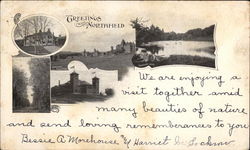 Greetings
from Northfield
We are enjoying a
visit together amid
many beauties of nature
and send loving remembrances to you
Bessie A. Morehouse & Harriet